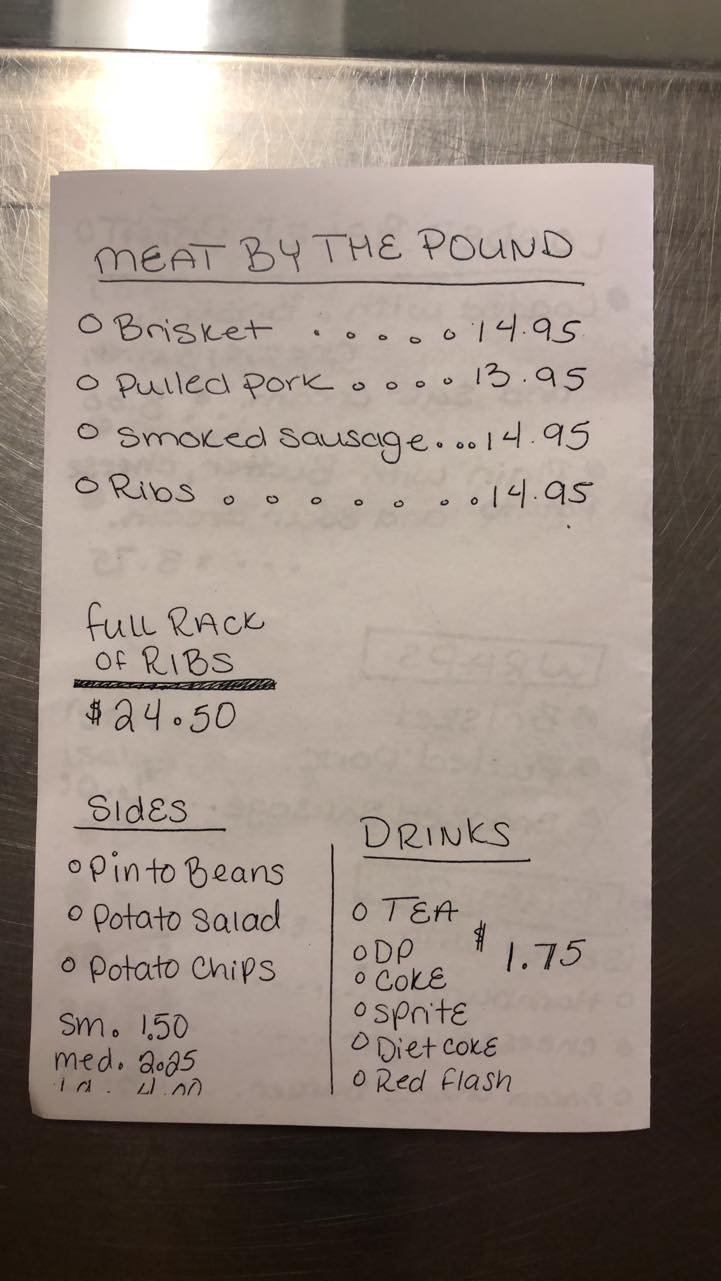 MEAT BY THE POUND
o Brisket . . . . . 14.95
o Pulled pork . . . . 13.95
o Smoked Sausage....14.95
o Ribs . . . . . . . . 14.95
FULL RACK
OF RIBS
$24.50
SIDES
o Pinto Beans
o Potato Salad
o Potato Chips
Sm. 1.50
med. 2.25
DRINKS
o TEA
$ 1.75
o DP
o COKE
o Sprite
o Diet coke
o Red Flash